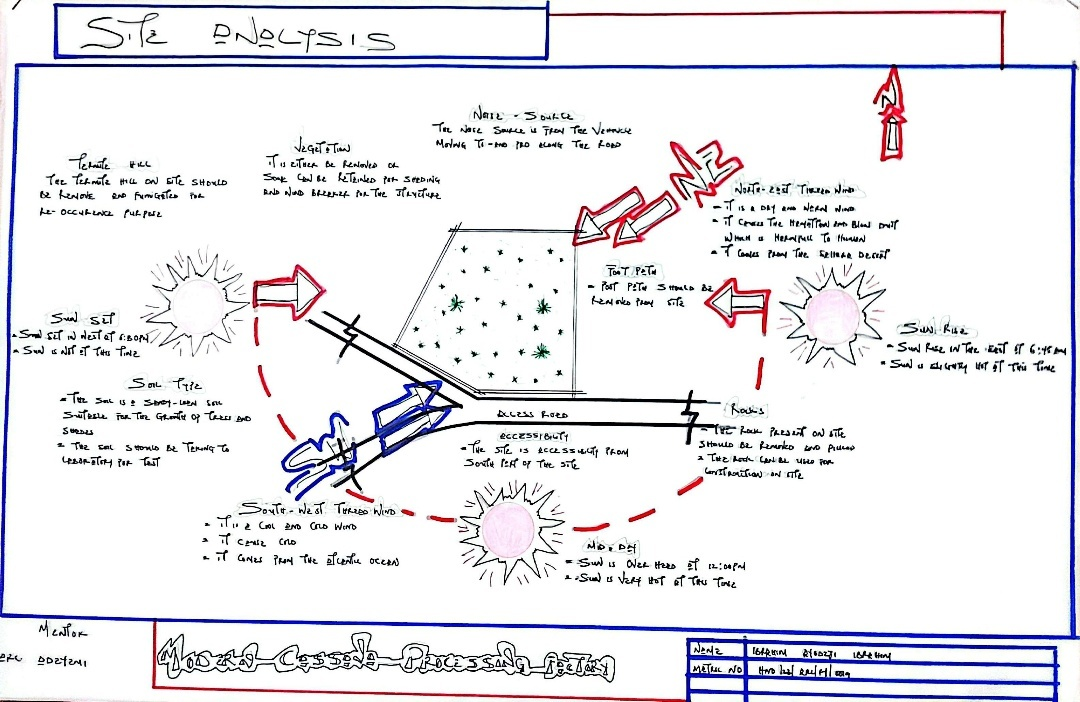 SITE ANALYSIS
N
NOISE - SOURCE
THE NOISE SOURCE IS FROM THE VEHICLE
MOVING TO-AND FRO ALONG THE ROAD
VEGETATION
IT IS EITHER BE REMOVED OR
SOME CAN BE RETAINED FOR SHADING
AND WIND BREAKER FOR THE STRUCTURE
TERMITE HILL
THE TERMITE HILL ON SITE SHOULD
BE REMOVE AND FUMIGATED FOR
RE-OCCURENCE PURPOSE
NE
NORTH-EAST TRADE WIND
IT IS A DRY AND WARM WIND
IT CAUSES THE HAMATTAN AND BLOW DUST
WHICH IS HARMFULL TO HUMAN
IT COMES FROM THE SAHARA DESERT
FOOT PATH
FOOT PATH SHOULD BE
REMOVED FROM SITE
SUN SET
SUN SET IN WEST AT 6:30PM
SUN IS NOT AT THIS TIME
SUN RISE
SUN RISE IN THE EAST AT 6:45AM
SUN IS SLIGHTLY HOT AT THIS TIME
SOIL TYPE
THE SOIL IS A SANDY-LOAM SOIL
SUITABLE FOR THE GROWTH OF TREES AND
THE SOIL SHOULD BE TAKING TO
LABORATORY FOR TEST
ACCESS ROAD
ACCESSIBILITY
THE SITE IS ACCESSIBILITY FROM
SOUTH PART OF THE SITE
ROCKS
THE ROCK PRESENT ON SITE
SHOULD BE REMOVED AND
THE ROCK CAN BE USED FOR
CONSTRUCTION ON SITE
SW
SOUTH-WEST TRADE WIND
IT IS A COOL AND COLD WIND
IT CAUSE COLD
IT COMES FROM THE ATLANTIC OCEAN
MID-DAY
SUN IS OVER HEAD AT 12:00PM
SUN IS VERY HOT AT THIS TIME
MENTOR
ARC ADEYEMI
MODERN CASSAVA PROCESSING FACTORY
NAME IBRAHIM IBRAHIM
METRIC NO